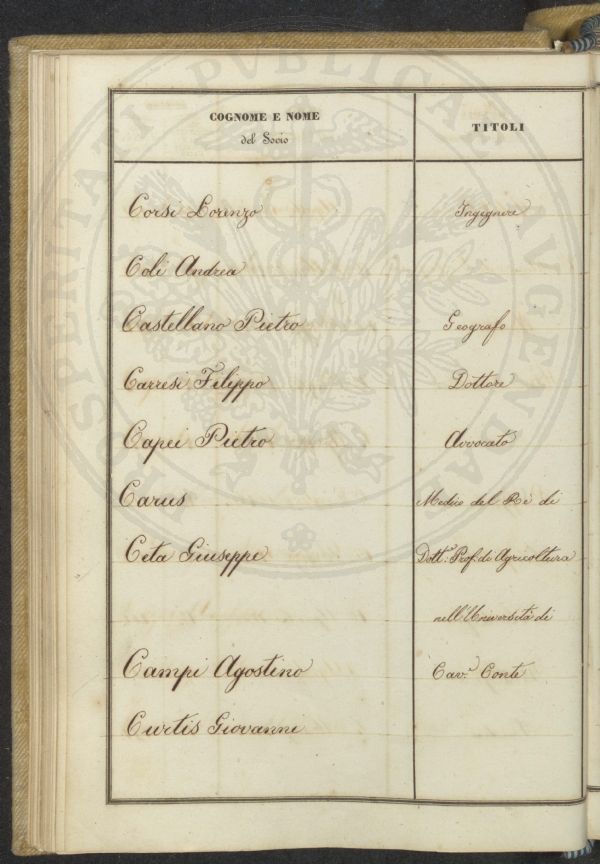 COGNOME E NOME
del Socio
TITOLI
Corsi Lorenzo Ingignere
Coli Andrea
Castellano Pietro Geografo
Carresi Filippo Dottore
Capei Pietro Avvocato
Carus Medico del Re di
Ceta Giuseppe Dott.e Prof. di Agricoltura
nell'Università di
Campi Agostino Cav.e Conte
Curtis Giovanni
PROSPERITATI PVBLICAE AVGENDAE